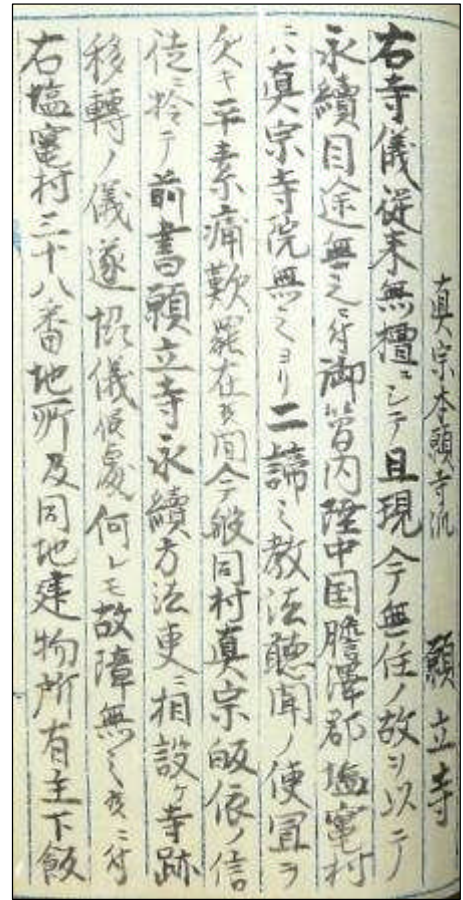 真宗本願寺派 願立寺
右寺儀従来無檀ニシテ且現今無住ノ故ヲ以テ
永續目途無之ニ付御管内陸中国膽澤郡塩竃村
ニハ真宗寺院無之ヨリ二諦之教法聴聞ノ便宜ヲ
欠キ平素痛歎罷在候間今般同村真宗皈依ノ信
徒ニ於テ前書願立寺永續方法更ニ相設ケ寺跡
移轉ノ儀遂協儀候處何レモ故障無之候ニ付
右塩竃村三十八番地所及同地建物所有主下飯